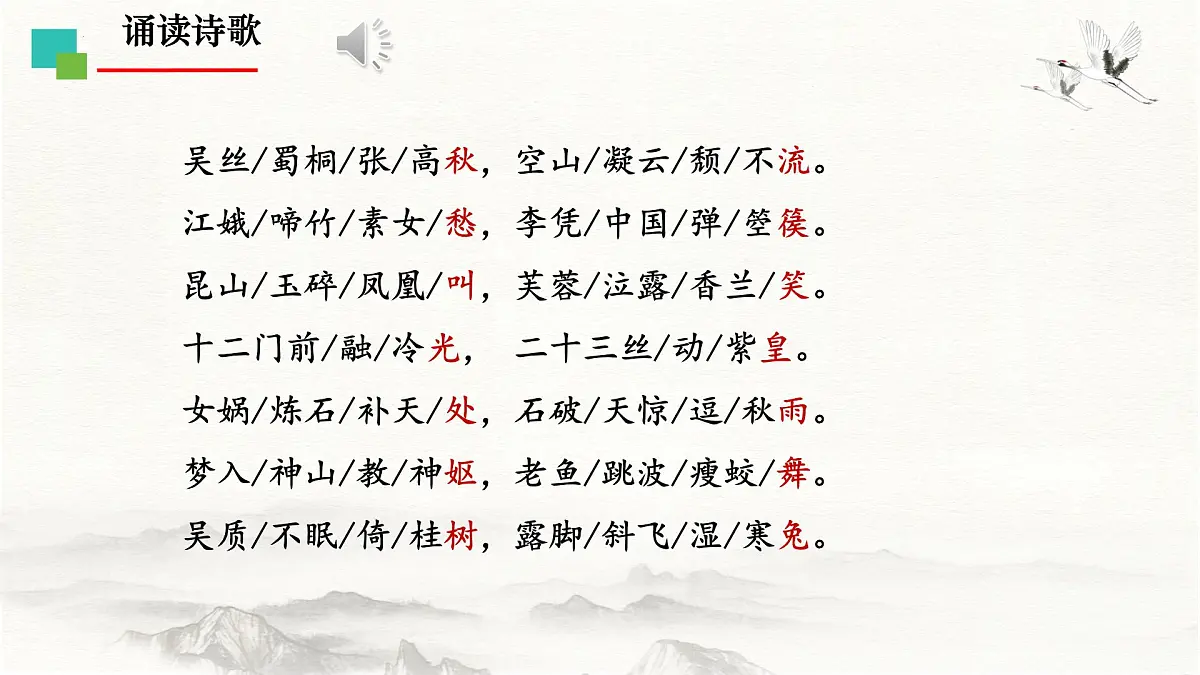 诵读诗歌
吴丝/蜀桐/张/高秋，空山/凝云/颓/不流。
江娥/啼竹/素女/愁，李凭/中国/弹/箜篌。
昆山/玉碎/凤凰/叫，芙蓉/泣露/香兰/笑。
十二门前/融/冷光， 二十三丝/动/紫皇。
女娲/炼石/补天/处，石破/天惊/逗/秋雨。
梦入/神山/教/神妪，老鱼/跳波/瘦蛟/舞。
吴质/不眠/倚/桂树，露脚/斜飞/湿/寒兔。